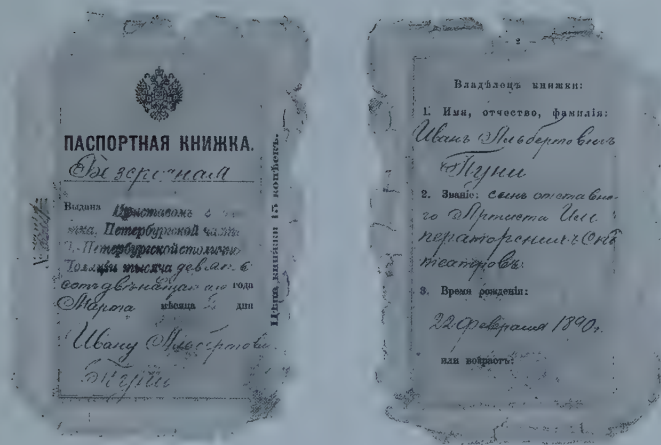 ПАСПОРТНАЯ КНИЖКА.
Безсрочная
Выдана Приставомъ
Петербургской части
С.-Петербургской столичной
Полиціи тысяча девять
сотъ двѣнадцат года
Марта мѣсяца дня
Ивану Альбертов
Пуни
Цѣна книжки 15 копѣекъ.
2
Владѣлецъ книжки:
1. Имя, отчество, фамилія:
Иванъ Альбертовичъ
Пуни
2. Званіе: сынъ отставно
го Артиста Им
ператорскихъ СПБ
театровъ.
3. Время рожденія:
22 февраля 1890 г.
или возрастъ: